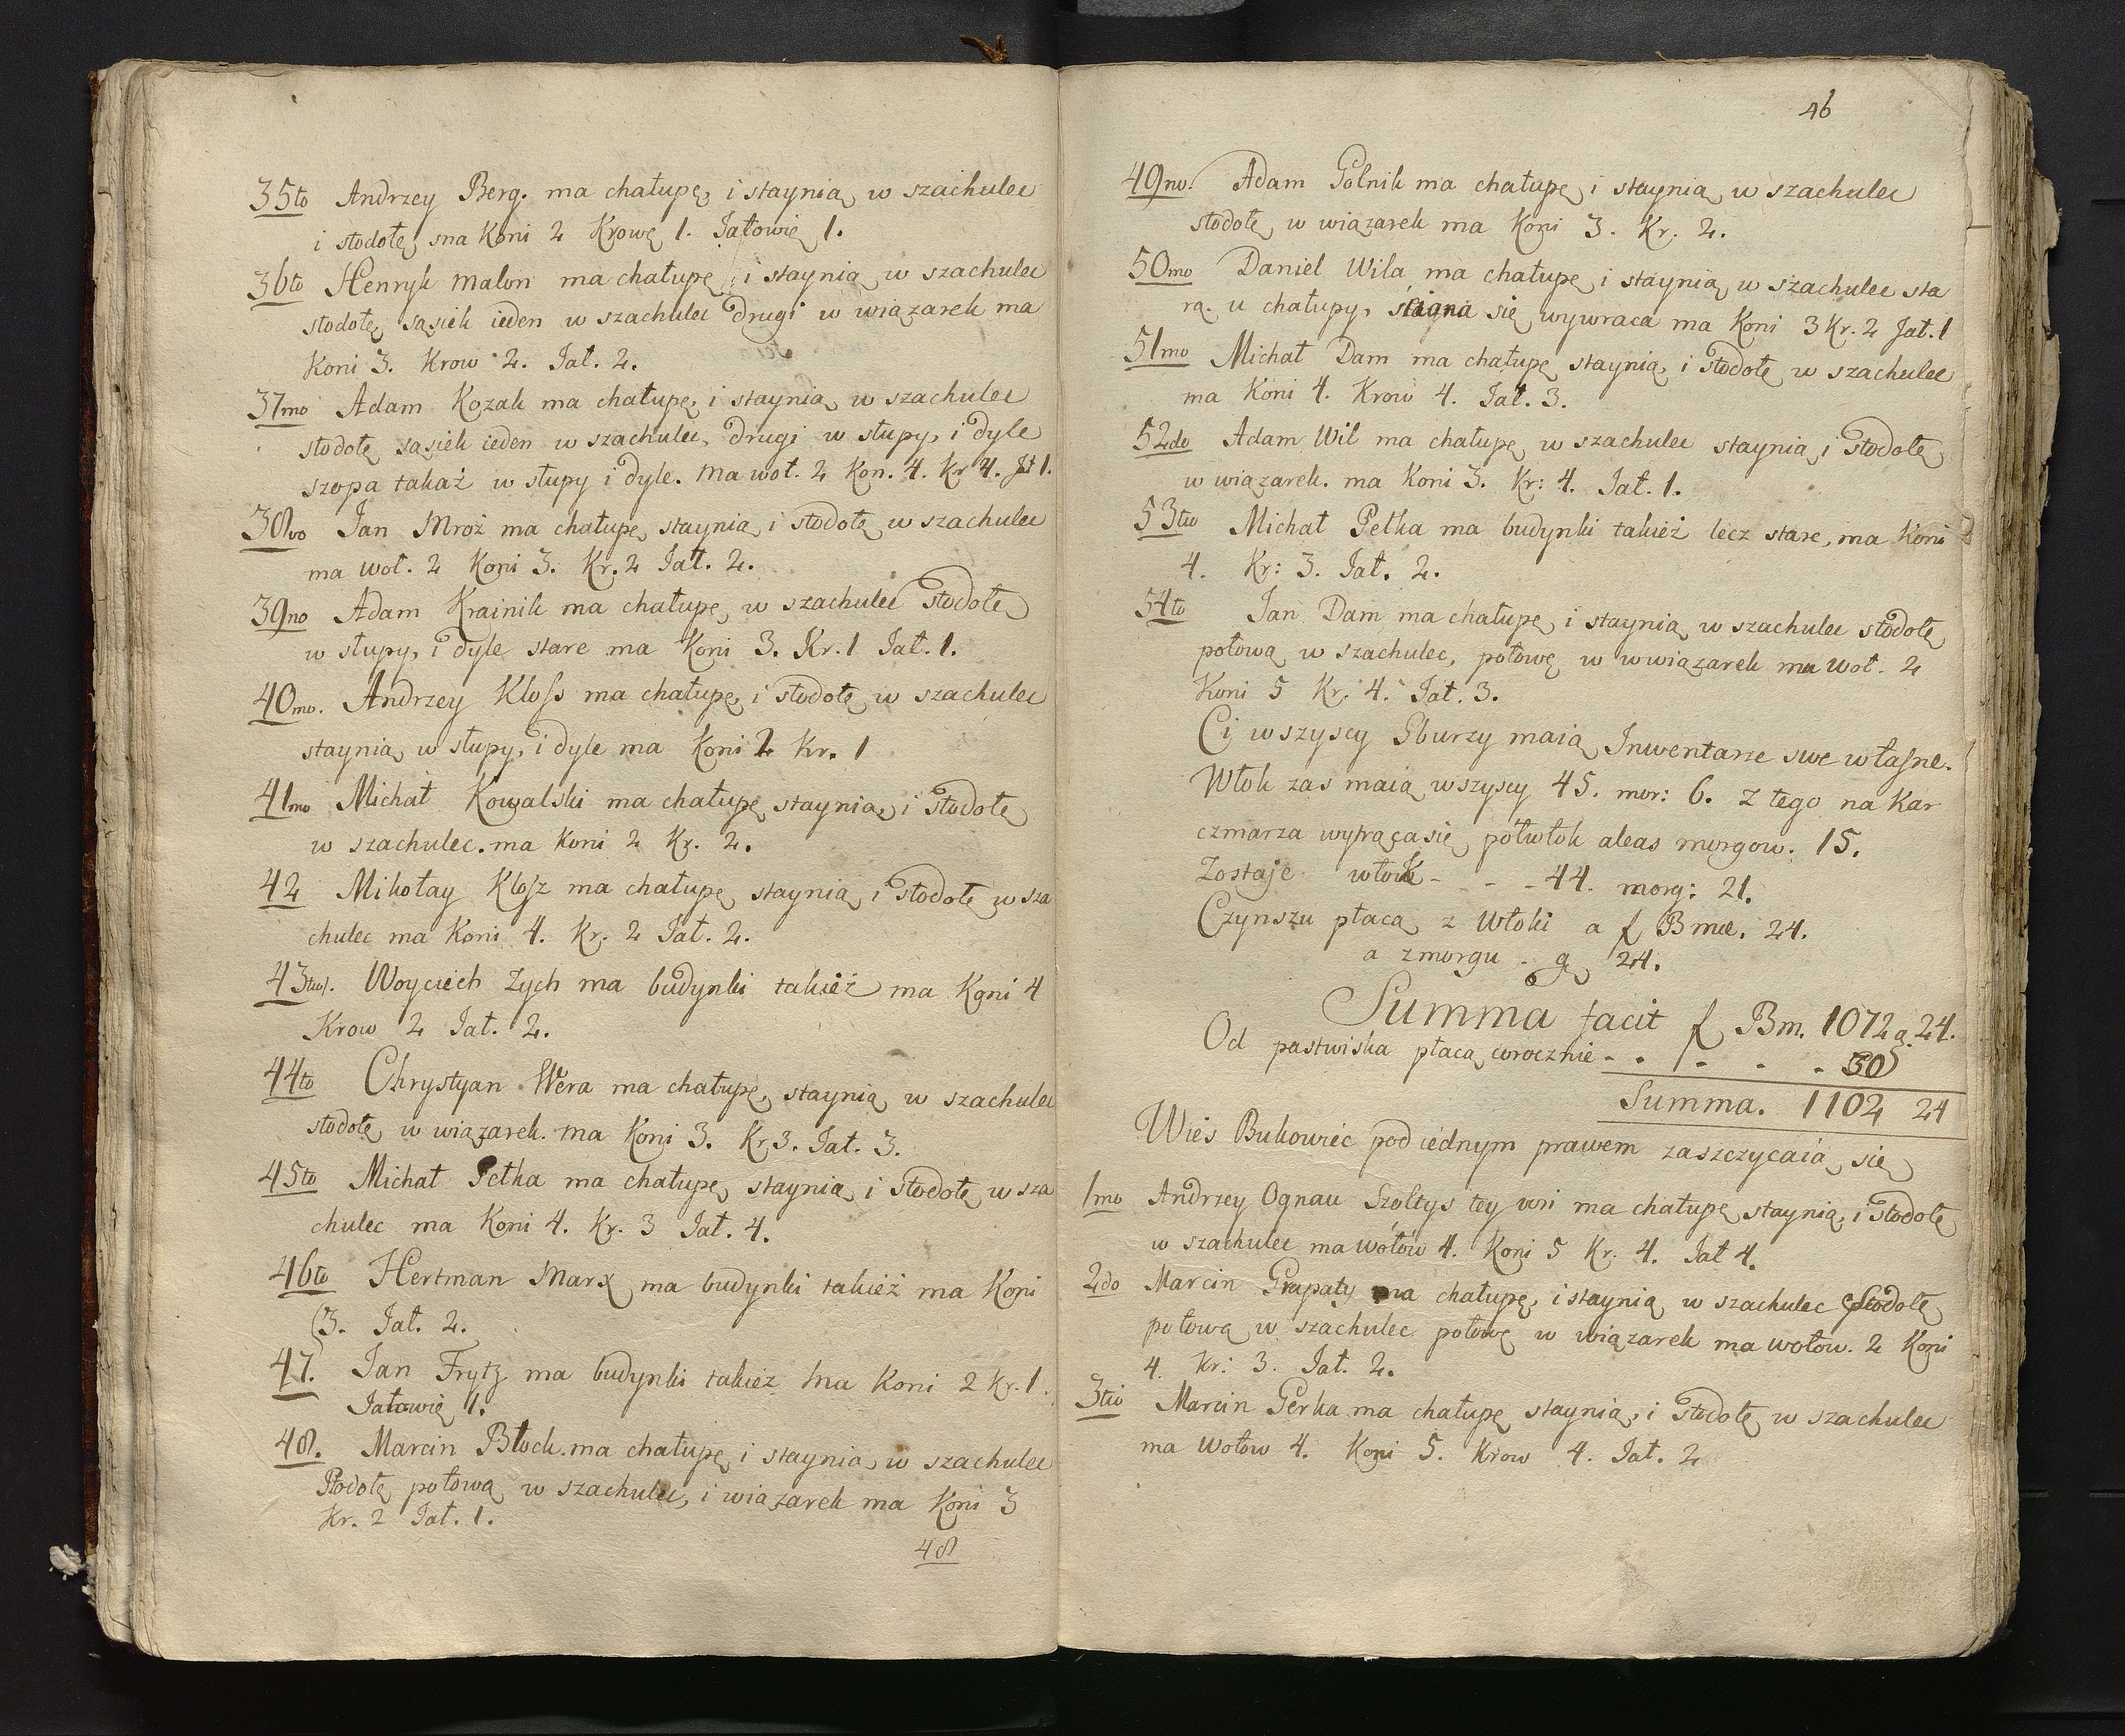 35to Andrzey Berg. ma chałupę, i staynią w szachulec
i stodołę, ma Koni 2 Krowę 1. Jałowię 1.
36to Henryk Malon ma chałupę, i staynią w szachulec
stodołę sąsiek ieden w szachulec drugi w wiązarek ma
Koni 3. Krow 2. Jał. 2.
37mo Adam Kozak ma chałupę, i staynią w szachulec
stodołę sąsiek ieden w szachulec, drugi w słupy, i dyle
szopa takaż w słupy i dyle. Ma woł. 2 Kon. 4. Kr. 4. Jał 1.
38vo Jan Mroż ma chałupę, staynią, i stodołę w szachulec
ma woł. 2 Koni 3. Kr. 2 Jał. 2.
39no Adam Krainik ma chałupę, w szachulec stodołę
w słupy, i dyle stare ma Koni 3. Kr. 1 Jał. 1.
40mo. Andrzey Kloss ma chałupę, i stodołę w szachulec
staynią w słupy, i dyle ma Koni 2 Kr. 1
41mo Michał Kowalski ma chałupę staynią, i stodołę
w szachulec. ma Koni 2 Kr. 2.
42 Mikołay Klosz ma chałupę staynią i stodołę w sza
chulec ma Koni 4. Kr. 2 Jał. 2.
43tio. Woyciech Zych ma budynki takież ma Koni 4
Krow 2 Jał. 2.
44to Chrystyan Wera ma chałupę, staynią w szachulec
stodołę w wiązarek. ma Koni 3. Kr. 3. Jał. 3.
45to Michał Petka ma chałupę, staynią, i stodołę w sza
chulec ma Koni 4. Kr. 3 Jał. 4.
46to Hertman Marx ma budynki takież ma Koni
3. Jał. 2.
47. Jan Frytz ma budynki takież ma Koni 2 Kr. 1.
Jałowię 1.
48. Marcin Block. ma chałupę i staynią w szachulec
Stodołę połową w szachulec, i wiązarek ma Koni 3
Kr. 2 Jał. 1.
48
46
49no. Adam Golnik ma chałupę i staynią w szachulec
stodołę w wiązarek ma Koni 3. Kr. 2.
50mo Daniel Wila ma chałupę i staynią w szachulec sta
rą. u chałupy, ściana się wywraca ma Koni 3 Kr. 2 Jał. 1
51mo Michał Dam ma chałupę staynią, i stodołę w szachulec
ma Koni 4. Krow 4. Jał. 3.
52do Adam Wil ma chałupę w szachulec staynią, i stodołę
w wiązarek. ma Koni 3. Kr: 4. Jał. 1.
53tio Michał Petka ma budynki takież lecz stare, ma Koni
4. Kr: 3. Jał. 2.
54to Jan Dam ma chałupę, i staynią w szachulec stodołę
połową w szachulec, połowę w wwiązarek ma woł. 2
Koni 5 Kr. 4. Jał. 3.
Ci wszyscy Gburzy maią Inwentarze swe własne.
Włok zas maią wszyscy 45. mor: 6. Z tego na Kar
czmarza wytrąca się, półwłok aleas morgow. 15.
Zostaje włok - - - 44. morg: 21.
Czynszu płacą z Włoki a f Bmae. 24.
a z morgu . g 24.
Summa facit f Bm. 1072 g. 24.
Od pastwiska płacą corocznie - . - . . 30
Summa. 1102 24
Wieś Bukowiec pod iednym prawem zaszczycaią się
1mo Andrzey Ognau Szołtys tey wsi ma chałupę staynią, i stodołę
w szachulec ma wołow 4. Koni 5 Kr. 4. Jał 4.
2do Marcin Grapaty ma chałupę, i staynią w szachulec stodołę
połową w szachulec połowę w wiązarek ma wołow. 2 Koni
4. Kr: 3. Jał. 2.
3tio Marcin Gerka ma chałupę staynią, i stodołę w szachulec
ma wołow 4. Koni 5. Krow 4. Jał. 2